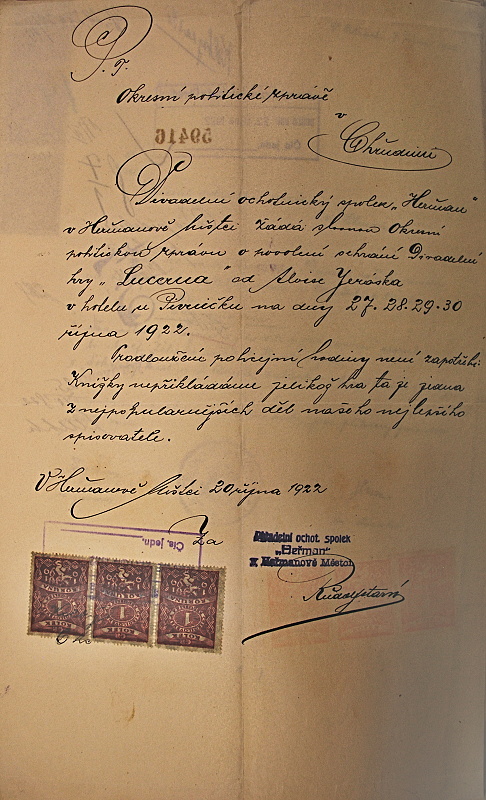 P. T.
Okresní politické správě
v
Chrudimi
59416
Divadelní ochotnický spolek „Heřman"
v Heřmanově Městci žádá slavnou Okresní
politickou správu o povolení sehrání Divadelní
hry „Lucerna" od Aloise Jeráska
v hotelu u na dny 27. 28. 29. 30
října 1922.
Prodloužení policejní hodiny není zapotřebí.
Knížky nepřikládáme jelikož hra ta je jedna
z nejpopularnějších děl našeho nejlepšího
spisovatele.
V Heřmanově Městci 20 října 1922
Za
Čís. jedn.
Divadelní ochot. spolek
„Heřman"
v Heřmanově Městci
1 1 1
KOLEK KOLEK KOLEK